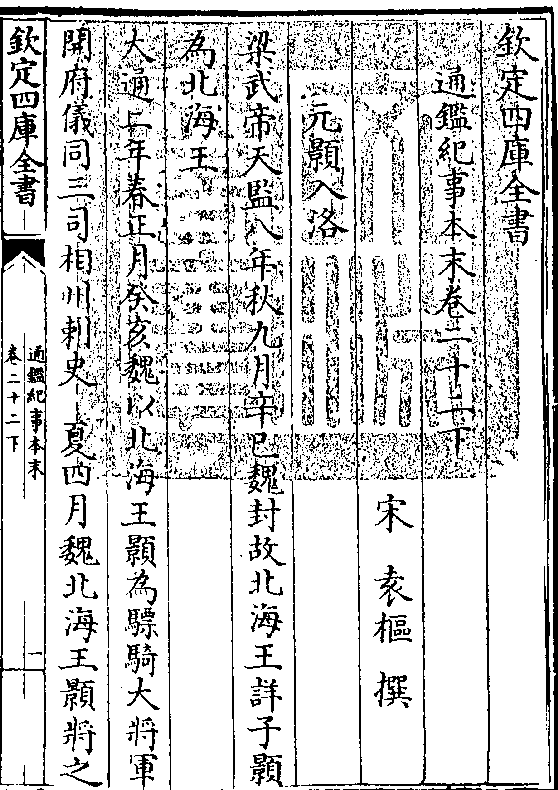 欽定四庫全書
通鑑紀事本末卷二十二下
宋 袁樞 撰
元顥入洛
梁武帝天監八年秋九月辛巳魏封故北海王詳子顥
為北海王
大通二年春正月癸亥魏以北海王顥為驃騎大將軍
開府儀同三司相州刺史 夏四月魏北海王顥將之
欽定四庫全書
通鑑紀事本末
卷二十二下
一